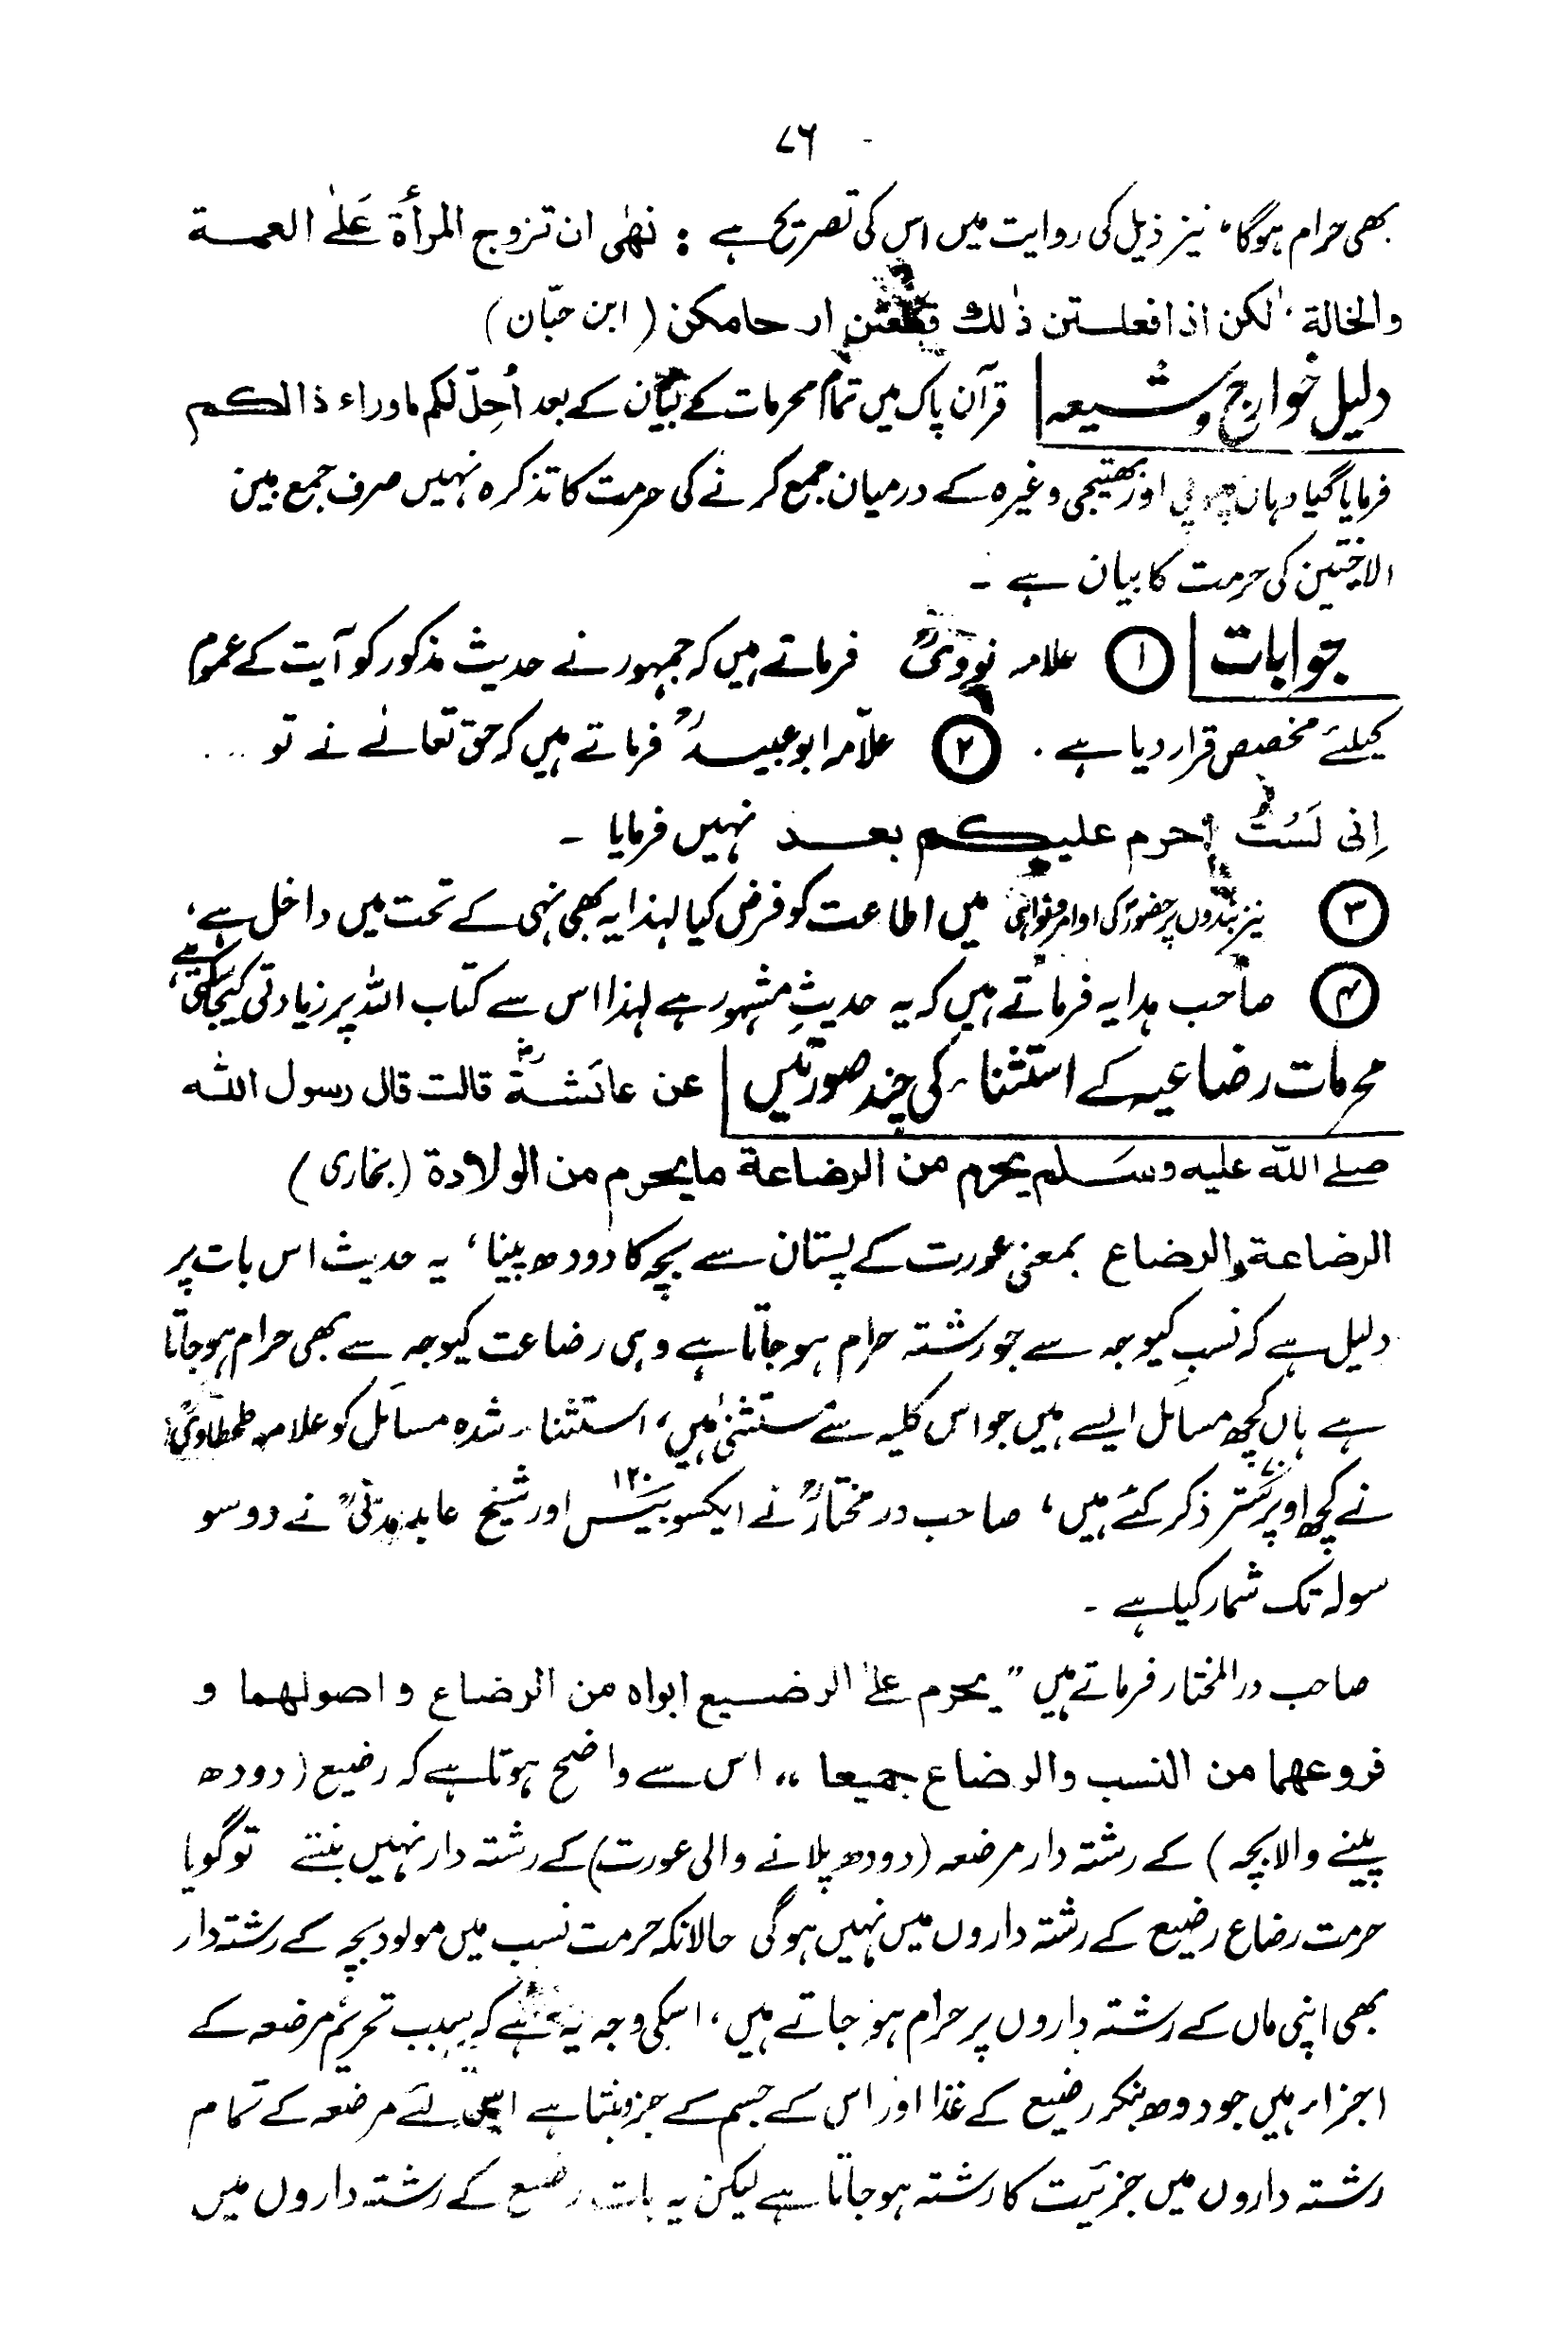 ۷۶
بھی حرام ہوگا، نیز ذیل کی روایت میں اس کی تصریح ہے : نھٰی ان تزوج المرأۃ عَلیٰ العمــة
والخالة، لٰکن اذا فعلــتن ذٰلك قطعتن ارحامکن ( ابن حبّان )
دلیل خوارج و شیعہ | قرآن پاک میں تمام محرمات کے بیان کے بعد اُحِلّ لکم ماوراء ذالکم
فرمایا گیا وہاں پھوپی اور بھتیجی وغیرہ کے درمیان جمع کرنے کی حرمت کا تذکرہ نہیں صرف جمع بین
الاختین کی حرمت کا بیان ہے ۔
جوابات | ① علامہ نوویؒ فرماتے ہیں کہ جمہور نے حدیث مذکور کو آیت کے عموم
کیلئے مخصص قرار دیا ہے ۔ ② علّامہ ابوعبیدؒ فرماتے ہیں کہ حق تعالےٰ نے تو ...
اِنی لَسْتُ اُحرم علیکم بعــد نہیں فرمایا ۔
③ نیز بندوں پر حضورؐ کی اوامر ونواہی میں اطاعت کو فرض کیا لہذا یہ بھی نہی کے تحت میں داخل ہے ،
④ صاحب ہدایہ فرماتے ہیں کہ یہ حدیثِ مشہور ہے لہذا اس سے کتاب اللہ پر زیادتی کیجاسکتی ہے ،
محرمات رضاعیہ کے استثناء کی چند صورتیں | عن عائشــةؓ قالت قال رسول اللہ
صلے اللہ علیہ وسَــلم یحرم من الرضاعة مایحرم من الولادة (بخاری )
الرضاعة والرضاع بمعنی عورت کے پستان سے بچہ کا دودھ پینا ، یہ حدیث اس بات پر
دلیل ہے کہ نسب کیوجہ سے جو رشتہ حرام ہوجاتا ہے وہی رضاعت کیوجہ سے بھی حرام ہوجاتا
ہے ہاں کچھ مسائل ایسے ہیں جو اس کلیہ سے مستثنیٰ ہیں ، استثناء شدہ مسائل کو علامہ طحطاویؒ
نے کچھ اوپر ستر ۷۰ ذکر کئے ہیں ، صاحب درمختارؒ نے ایکسو بیس ۱۲۰ اور شیخ عابد مدنیؒ نے دو سو
سولہ تک شمار کیا ہے ۔
صاحب درالمختار فرماتے ہیں ” یحرم علےٰ الرضــیع ابواہ من الرضاع و اصولہما و
فروعھما من النسب والرضاع جمیعا ،، اس سے واضح ہوتا ہے کہ رضیع ( دودھ
پینے والا بچہ ) کے رشتہ دار مرضعہ (دودھ پلانے والی عورت) کے رشتہ دار نہیں بنتے تو گویا
حرمت رضاع رضیع کے رشتہ داروں میں نہیں ہوگی حالانکہ حرمت نسب میں مولود بچہ کے رشتہ دار
بھی اپنی ماں کے رشتہ داروں پر حرام ہوجاتے ہیں ، اسکی وجہ یہ ہے کہ سبب تحریم مرضعہ کے
اجزاء ہیں جو دودھ بنکر رضیع کے غذا اور اس کے جسم کے جزو بنتا ہے اسی لئے مرضعہ کے تمام
رشتہ داروں میں جزئیت کا رشتہ ہوجاتا ہے لیکن یہ بات رضیع کے رشتہ داروں میں